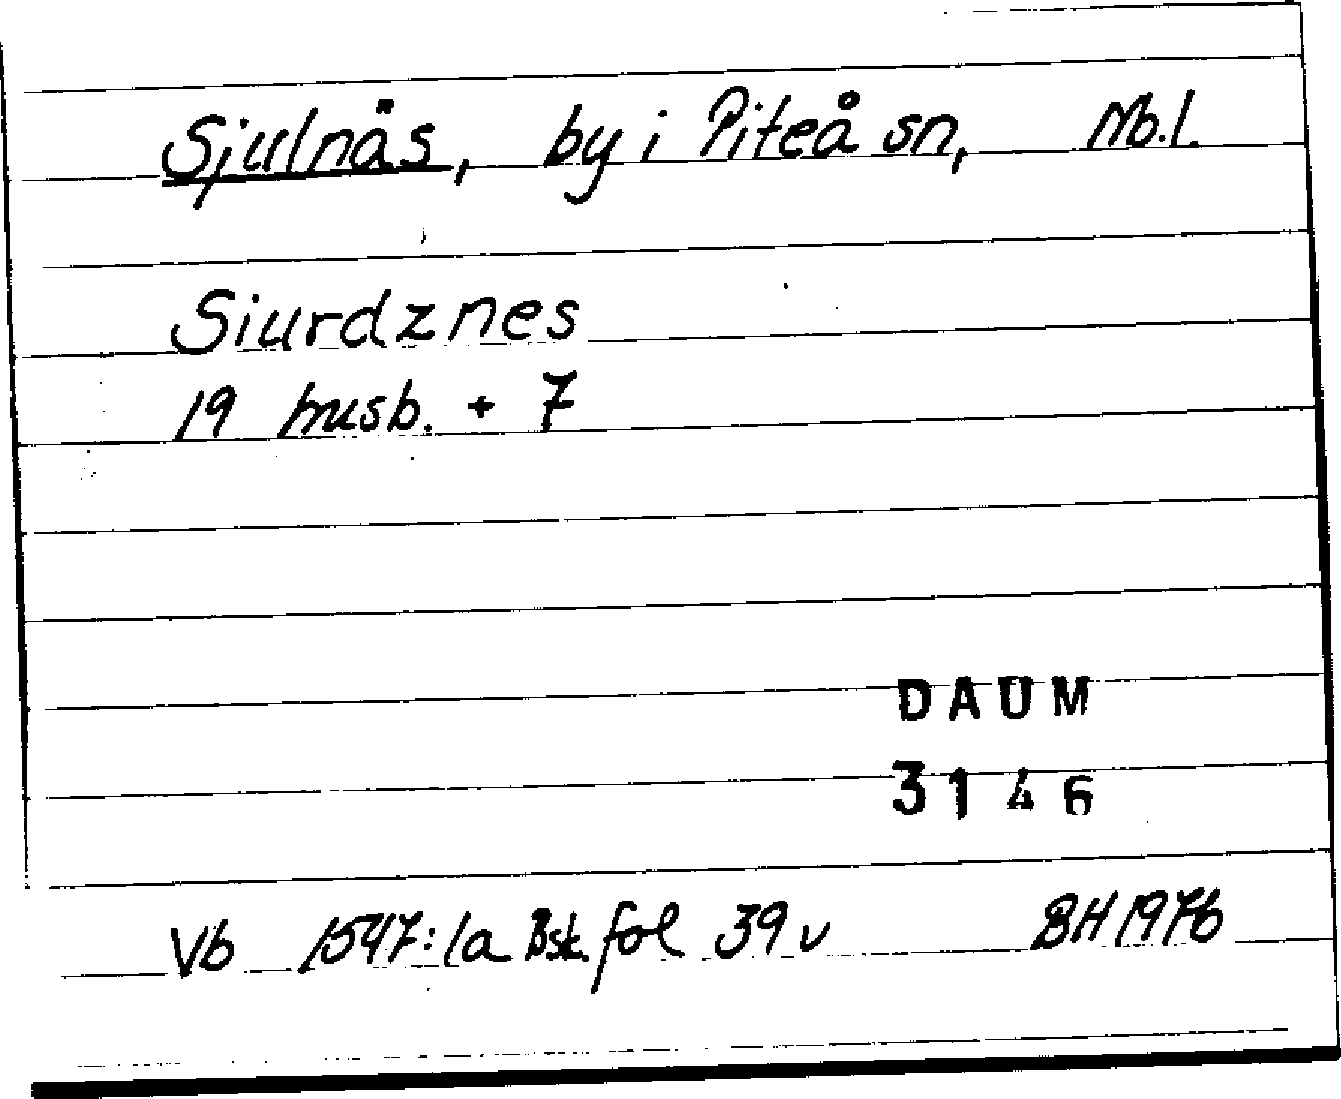 Sjulnäs, by i Piteå sn, Nb.l.
Siurdznes
19 husb. + 7
DAUM
3146
Vb 1547:1a Bsk. fol 39 v BH 1976